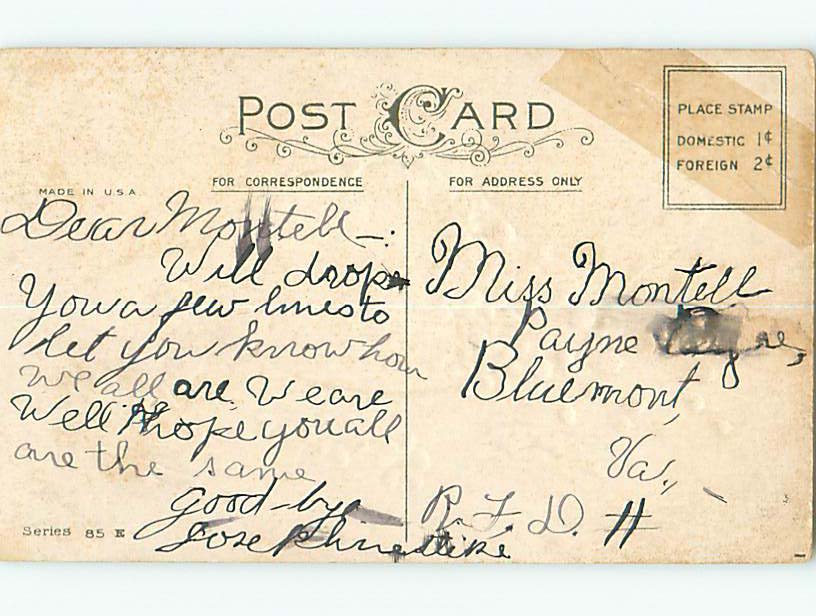 POST CARD
PLACE STAMP
DOMESTIC 1¢
FOREIGN 2¢
MADE IN U.S.A.
FOR CORRESPONDENCE
FOR ADDRESS ONLY
Dear Montell—:
Will drop
You a few lines to
let you know how
we all are. We are
Well. hope you all
are the same
Good-bye
Josephine
Miss Montell
Payne
Bluemont,
Va.,
R. F. D. #
Series 85 E